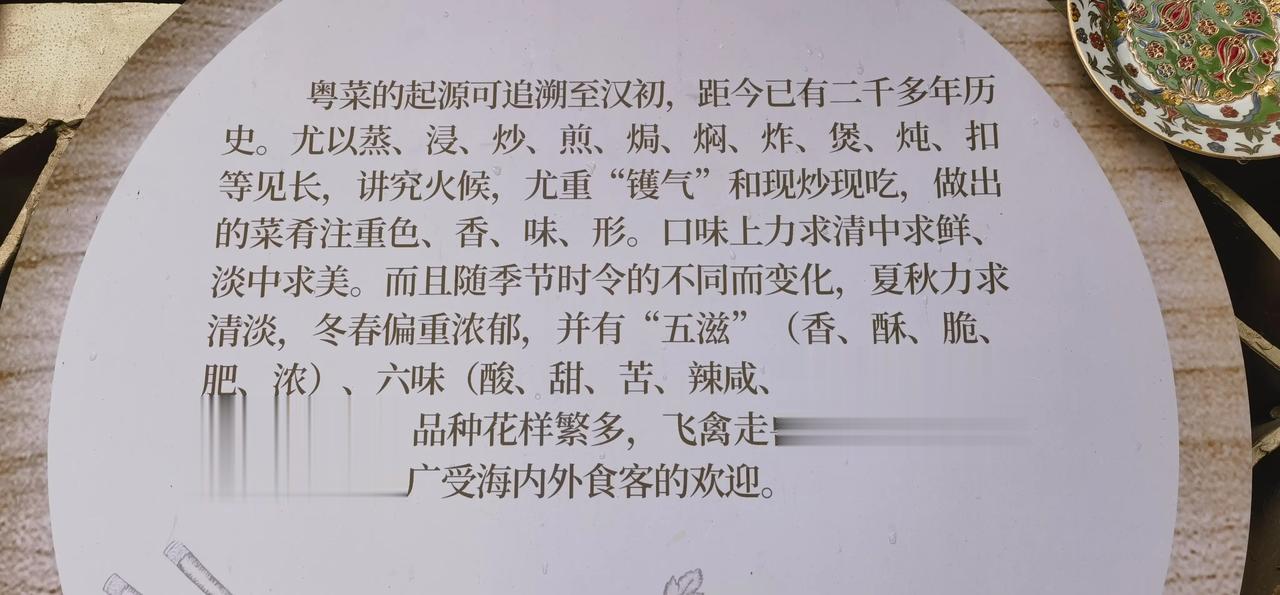 粤菜的起源可追溯至汉初，距今已有二千多年历
史。尤以蒸、浸、炒、煎、焗、焖、炸、煲、炖、扣
等见长，讲究火候，尤重“镬气”和现炒现吃，做出
的菜肴注重色、香、味、形。口味上力求清中求鲜、
淡中求美。而且随季节时令的不同而变化，夏秋力求
清淡，冬春偏重浓郁，并有“五滋”（香、酥、脆、
肥、浓）、六味（酸、甜、苦、辣咸、
品种花样繁多，飞禽走
广受海内外食客的欢迎。